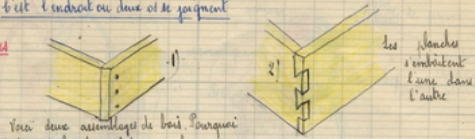 C'est l'endroit où deux os se joignent
1)
2)
Les planches
s'emboîtent
l'une dans
l'autre
Voici deux assemblages de bois. Pourquoi